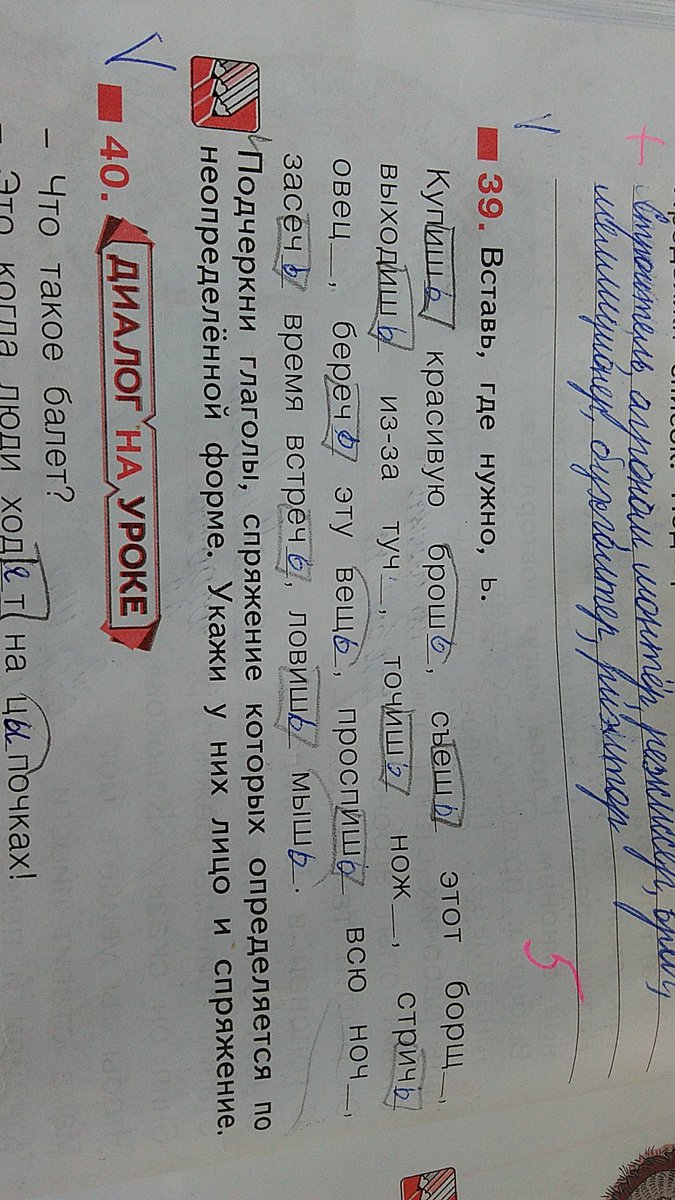 Строитель, агроном, монтёр, режиссёр, врач,
милиционер, бухгалтер, риэлтер
5
39. Вставь, где нужно, ь.
Купишь красивую брошь, съешь этот борщ_,
выходишь из-за туч_, точишь нож_, стричь
овец_, беречь эту вещь, проспишь всю ноч_,
засечь время встречь, ловишь мышь.
Подчеркни глаголы, спряжение которых определяется по
неопределённой форме. Укажи у них лицо и спряжение.
40. ДИАЛОГ НА УРОКЕ
– Что такое балет?
– Это когда люди ходят на цыпочках!